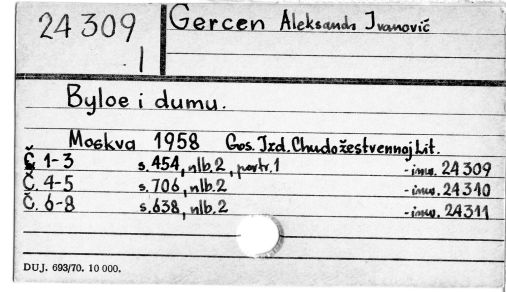 24 309
1
Gercen Aleksandr Ivanovič
Byloe i dumu.
Moskva 1958 Gos. Izd. Chudožestvennoj Lit.
Č. 1-3 s. 454, nlb. 2, portr. 1 - inw. 24 309
Č. 4-5 s. 706, nlb. 2 - inw. 24310
Č. 6-8 s. 638, nlb. 2 - inw. 24311
DUJ. 693/70. 10 000.